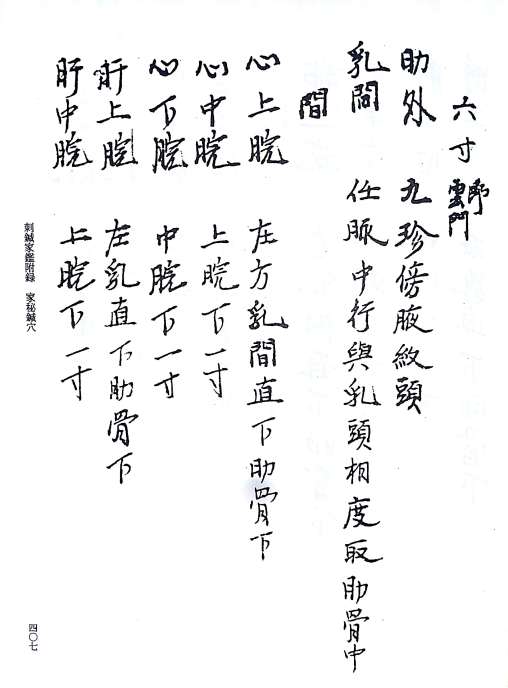 六寸 即雲門
肋外 九珍傍腋紋頭
乳間 任脈中行與乳頭相度取肋骨中
間
心上脘 在方乳間直下肋骨下
心中脘 上脘下一寸
心下脘 中脘下一寸
肝上脘 左乳直下肋骨下
肝中脘 上脘下一寸
刺鍼家鑑附録 家秘鍼穴
四〇七